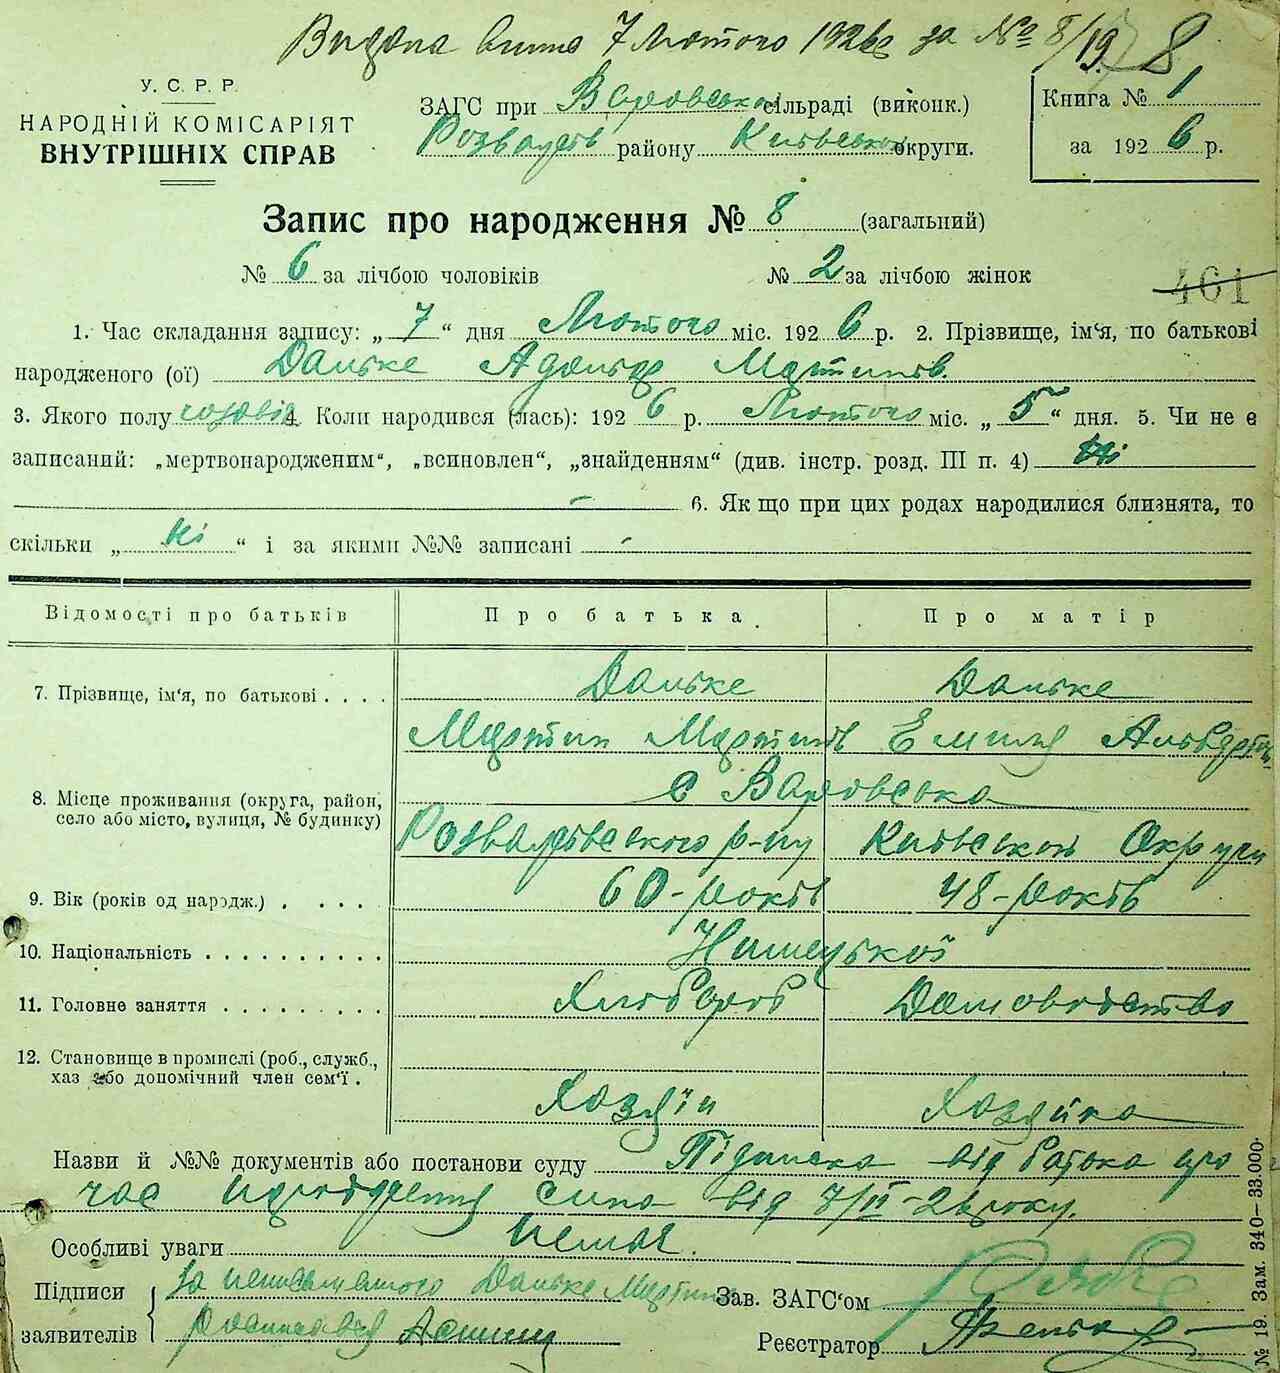 Видана 7 Лютого 1926 за № 8/19 8
У. С. Р. Р.
НАРОДНІЙ КОМІСАРІЯТ
ВНУТРІШНІХ СПРАВ
ЗАГС при сільраді (виконк.)
району округи.
Книга № 1
за 192 6 р.
Запис про народження № 8 (загальний)
№ 6 за лічбою чоловіків № 2 за лічбою жінок
461
1. Час складання запису: „ 7 “ дня Лютого міс. 192 6 р. 2. Прізвище, ім'я, по батькові
народженого (ої) Дальке Адольф Мартинів.
3. Якого полу чоловіч 4. Коли народився (лась): 192 6 р. Лютого міс. „ 5 “ дня. 5. Чи не є
записаний: „мертвонародженим“, „всиновлен“, „знайденням“ (див. інстр. розд. III п. 4) Ні
— 6. Як що при цих родах народилися близнята, то
скільки „ Ні “ і за якими №№ записані -
Відомості про батьків Про батька. Про матір
7. Прізвище, ім'я, по батькові . . . . Дальке Дальке
Мартин Мартинів Емилія
8. Місце проживання (округа, район,
село або місто, вулиця, № будинку)
с Варовська
Розважівського р-ну Київської Округи
9. Вік (років од народж.) . . . . . 60-років 48-років
10. Національність . . . . . . . . . . Нимецької
11. Головне заняття . . . . . . . . . Хлібороб Домоводство
12. Становище в промислі (роб., служб.,
хаз або допомічний член сем'ї .
Хозяїн Хозяйка
Назви й №№ документів або постанови суду Підписка від батька про
час народження сина від 7/II-26 року.
Особливі уваги Немає.
Підписи
заявителів
За неписьменного Дальке Мартина
Росписався
Зав. ЗАГС'ом
Реєстратор
№ 19. Зам. 340—33.000.